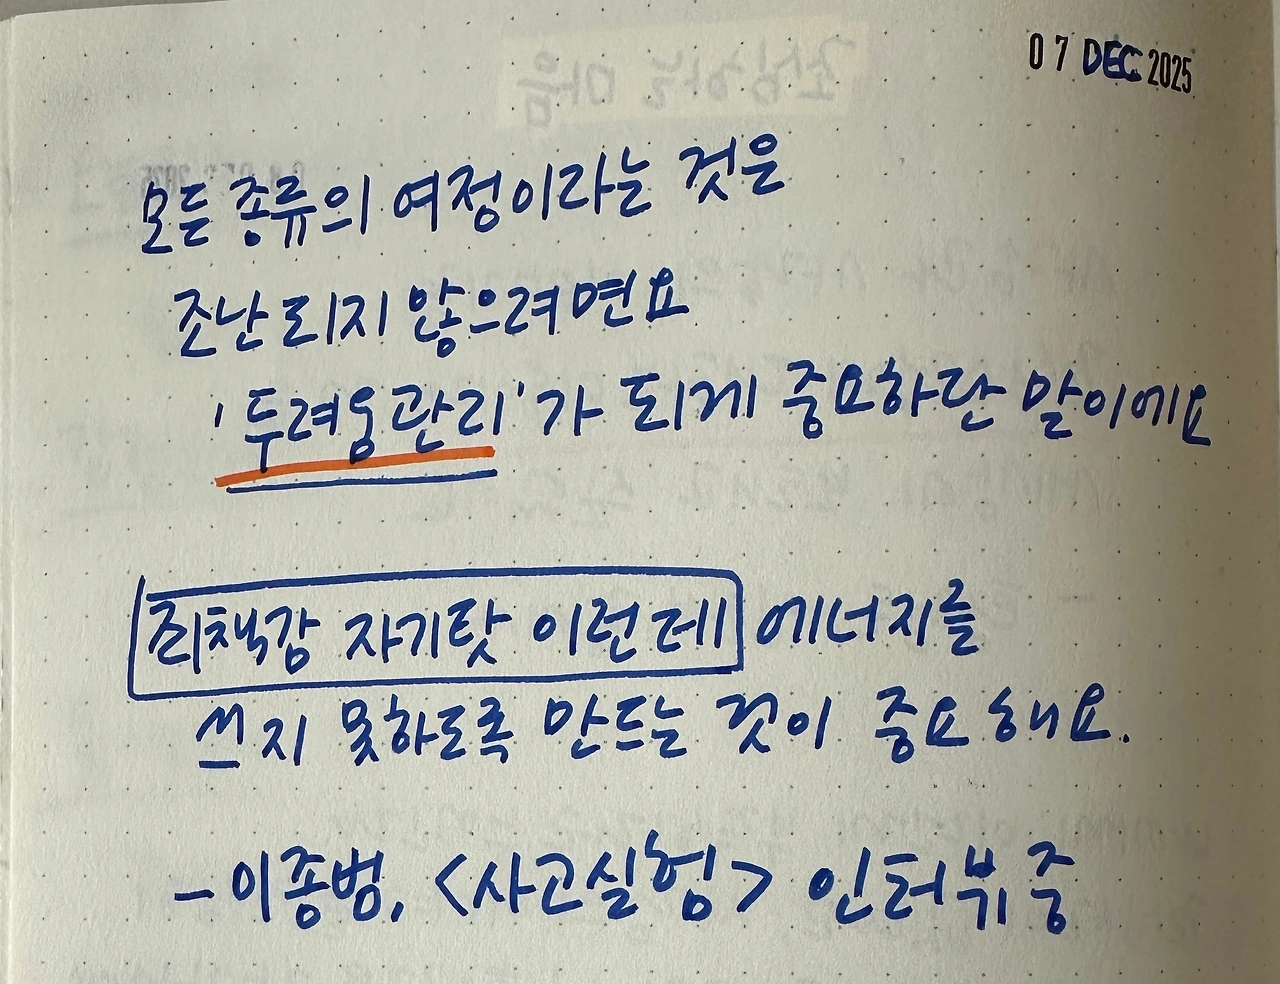 07 DEC 2025
모든 종류의 여정이라는 것은
조난되지 않으려면요
'두려움관리'가 되게 중요하단 말이에요
죄책감 자기탓 이런데 에너지를
쓰지 못하도록 만드는 것이 중요해요.
- 이종범, <사고실험> 인터뷰 중